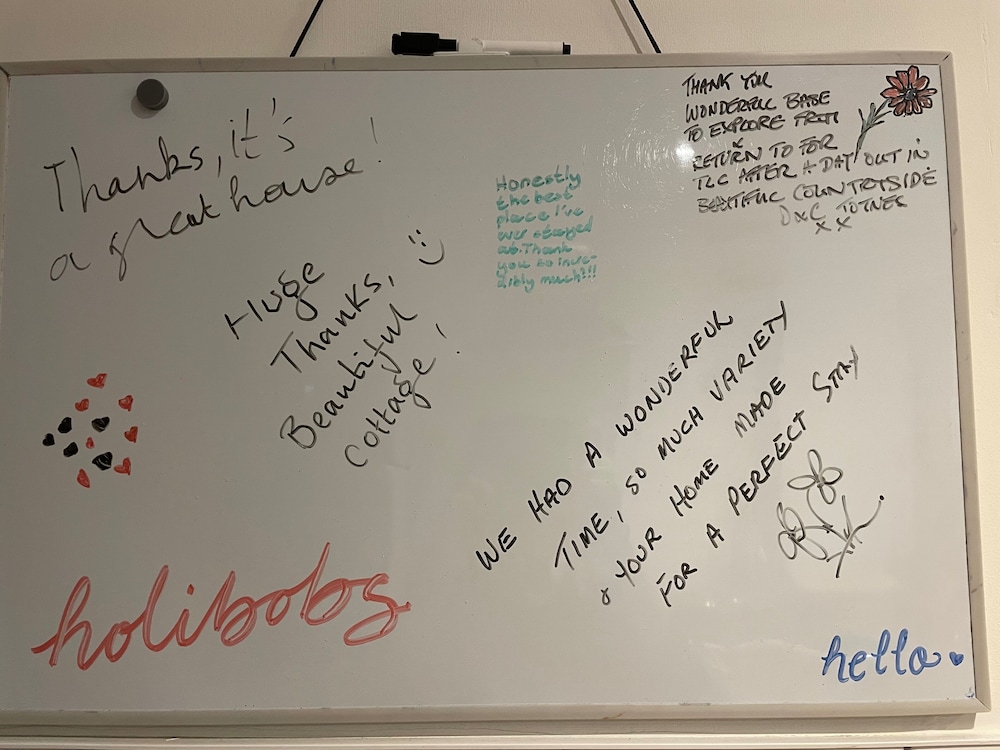 Thanks, it's
a great house!
Huge
Thanks,
Beautiful
Cottage!
:)
Honestly
the best
place I've
ever stayed
at. Thank
you so incre-
dibly much!!!
THANK YOU
WONDERFUL BASE
TO EXPLORE FROM
RETURN TO FOR
TLC AFTER A DAY OUT IN
BEAUTIFUL COUNTRYSIDE
DxC TOTNES
x x
WE HAD A WONDERFUL
TIME, SO MUCH VARIETY
& YOUR HOME MADE
FOR A PERFECT STAY
holibobs
hello